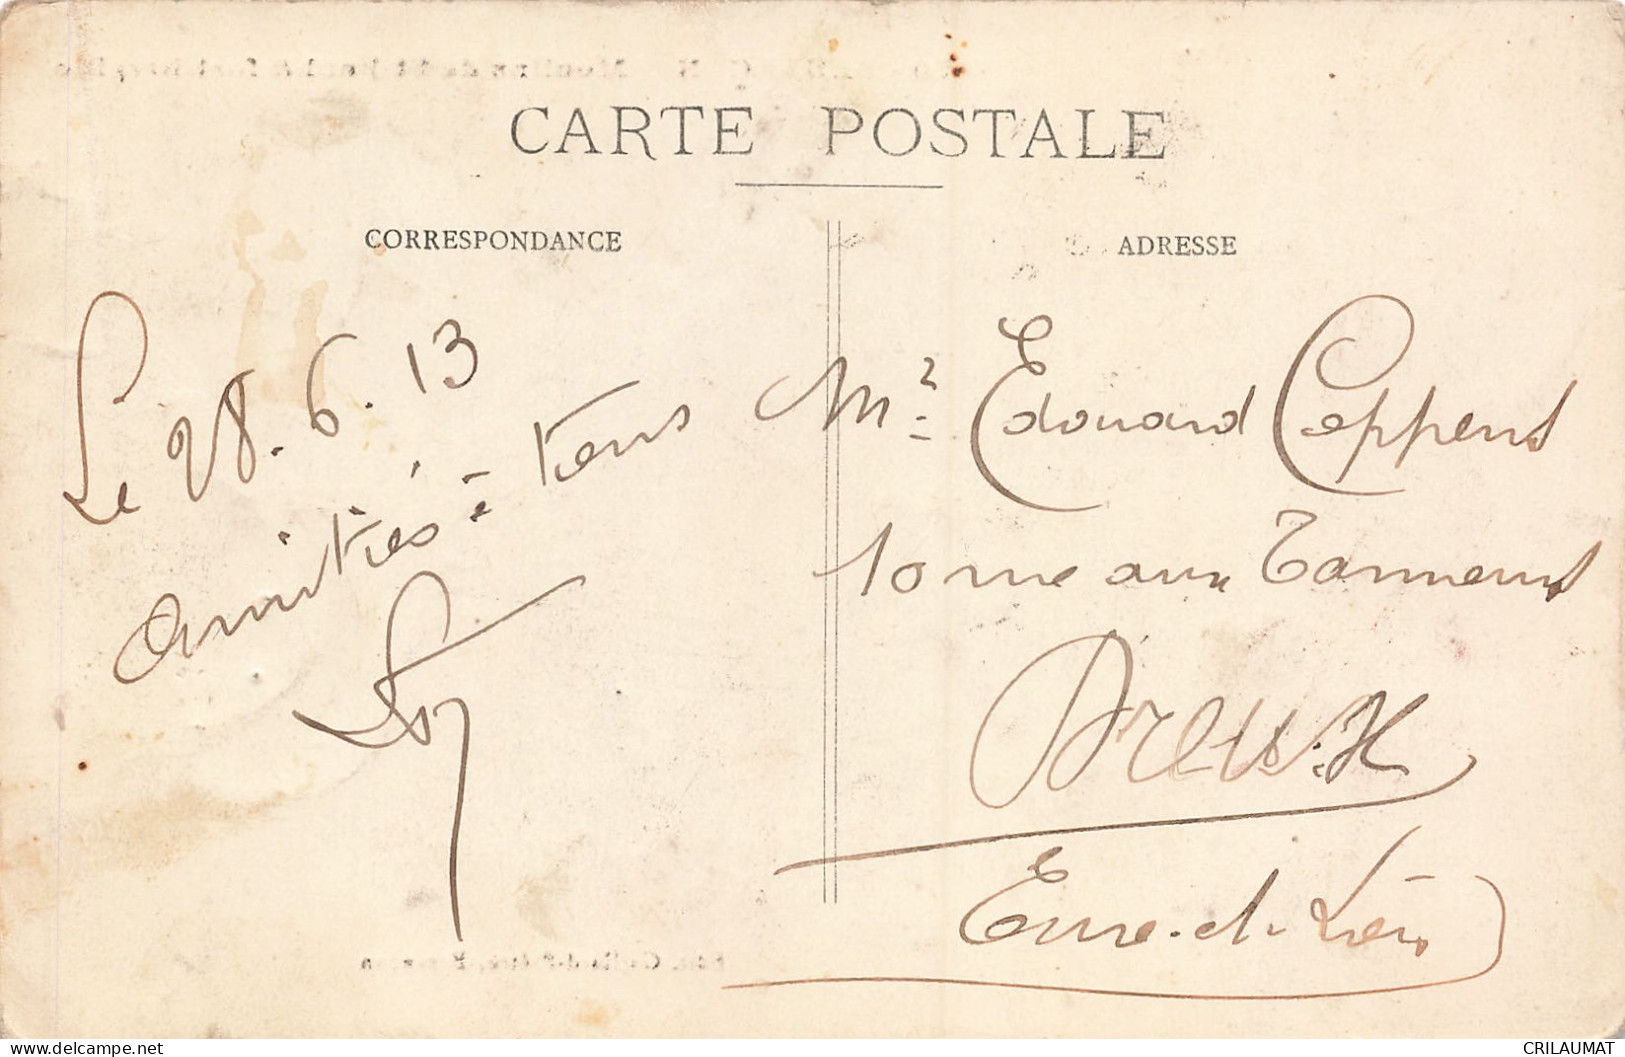 CARTE POSTALE
CORRESPONDANCE
Le 28.6.13
Amitiés à tous
ADRESSE
Mr Edouard Ceppens
10 rue aux Tanneurs
Dreux
Eure-et-Loir
www.delcampe.net
CRILAUMAT